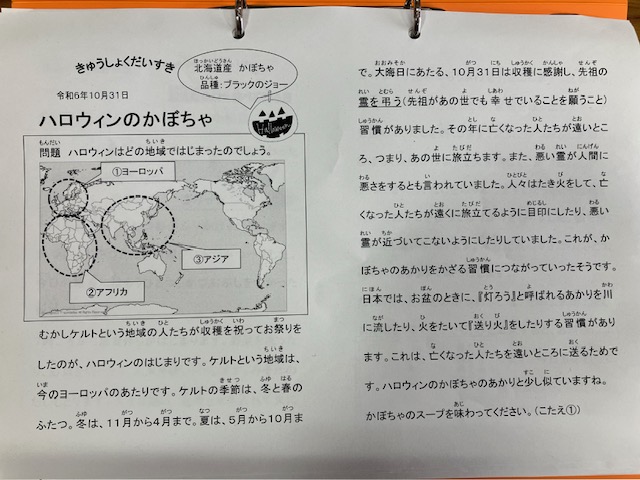 きゅうしょくだいすき
北海道産 かぼちゃ
品種:ブラックのジョー
令和6年10月31日
Halloween
ハロウィンのかぼちゃ
問題 ハロウィンはどの地域ではじまったのでしょう。
①ヨーロッパ
③アジア
②アフリカ
むかしケルトという地域の人たちが収穫を祝ってお祭りを
したのが、ハロウィンのはじまりです。ケルトという地域は、
今のヨーロッパのあたりです。ケルトの季節は、冬と春の
ふたつ。冬は、11月から4月まで。夏は、5月から10月ま
で。大晦日にあたる、10月31日は収穫に感謝し、先祖の
霊を弔う(先祖があの世でも幸せでいることを願うこと)
習慣がありました。その年に亡くなった人たちが遠いとこ
ろ、つまり、あの世に旅立ちます。また、悪い霊が人間に
悪さをするとも言われていました。人々はたき火をして、亡
くなった人たちが遠くに旅立てるように目印にしたり、悪い
霊が近づいてこないようにしたりしていました。これが、か
ぼちゃのあかりをかざる習慣につながっていったそうです。
日本では、お盆のときに、『灯ろう』と呼ばれるあかりを川
に流したり、火をたいて『送り火』をしたりする習慣があり
ます。これは、亡くなった人たちを遠いところに送るためで
す。ハロウィンのかぼちゃのあかりと少し似ていますね。
かぼちゃのスープを味わってください。(こたえ①)